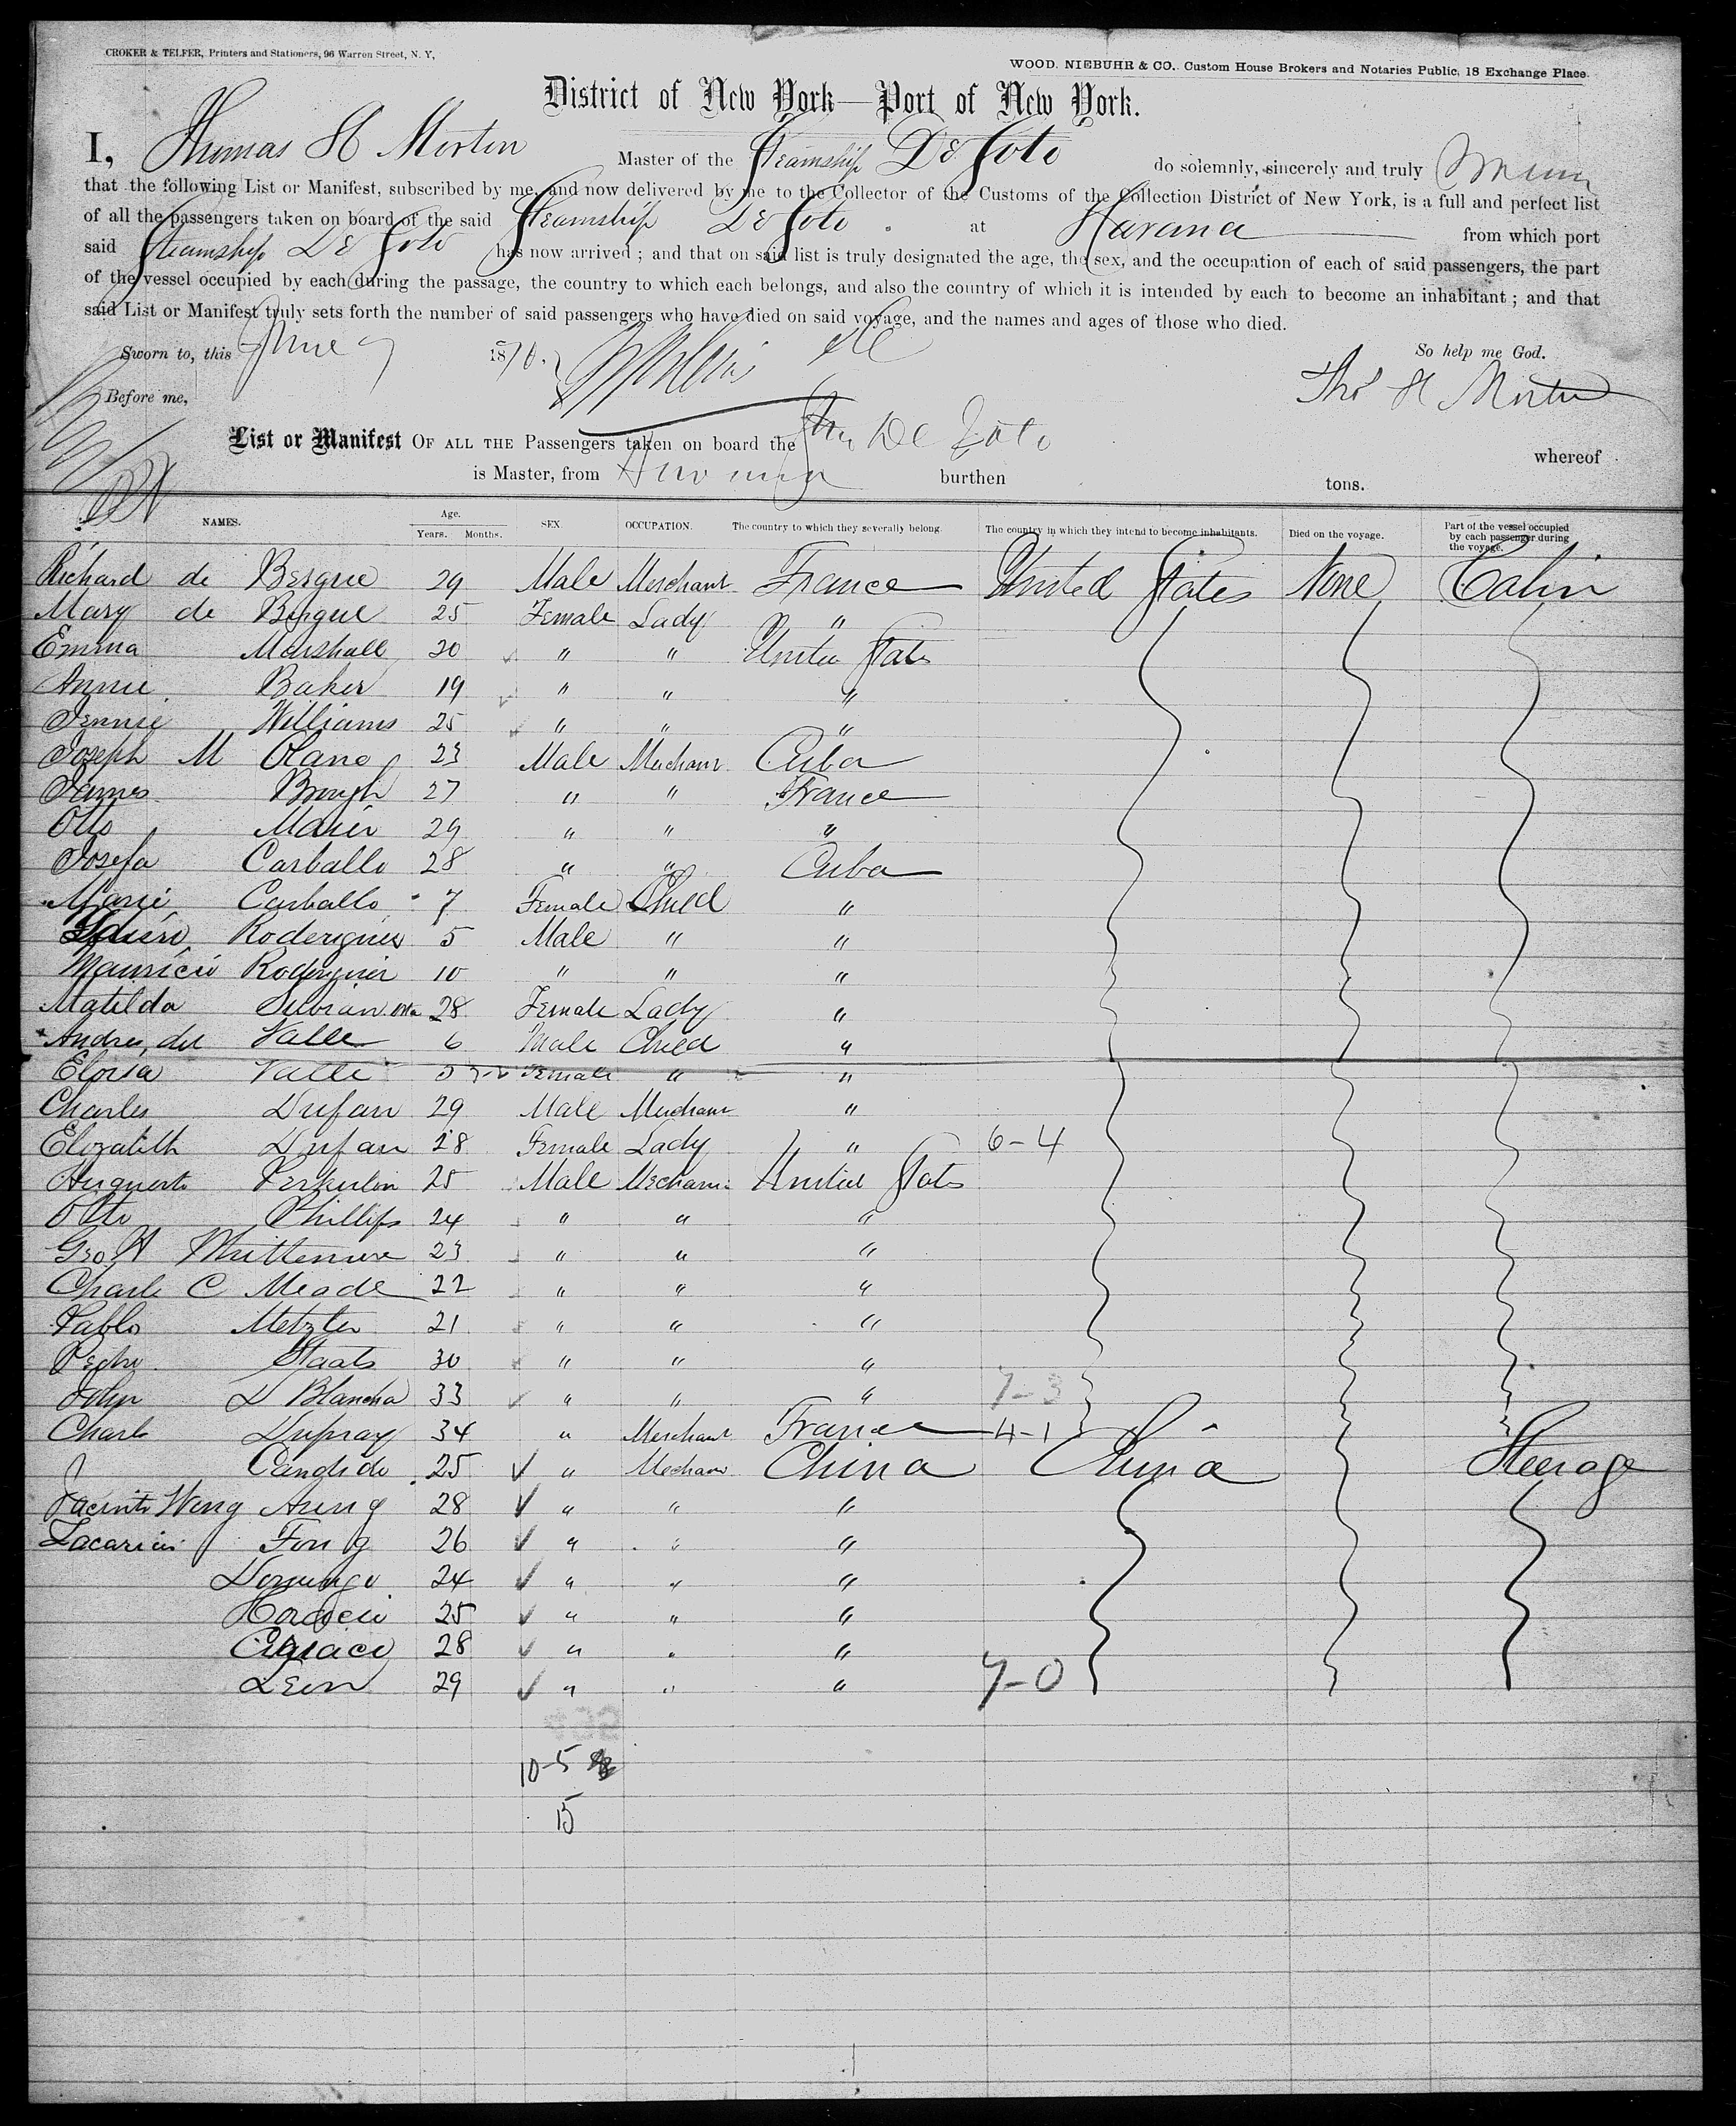 CROKER & TELFER, Printers and Stationers, 96 Warren Street, N. Y,
WOOD. NIEBUHR & CO.. Custom House Brokers and Notaries Public, 18 Exchange Place.
District of New York—Port of New York.
I, Thomas H Morton Master of the Steamship De Soto do solemnly, sincerely and truly Swear
that the following List or Manifest, subscribed by me, and now delivered by me to the Collector of the Customs of the Collection District of New York, is a full and perfect list
of all the passengers taken on board of the said Steamship De Soto at Havana from which port
said Steamship De Soto has now arrived ; and that on said list is truly designated the age, the sex, and the occupation of each of said passengers, the part
of the vessel occupied by each during the passage, the country to which each belongs, and also the country of which it is intended by each to become an inhabitant ; and that
said List or Manifest truly sets forth the number of said passengers who have died on said voyage, and the names and ages of those who died.
Sworn to, this June 7 1870. So help me God.
Before me, Thos H Morton
List or Manifest OF ALL THE Passengers taken on board the Str De Soto whereof
is Master, from burthen tons.
NAMES. Age. Years. Months. SEX. OCCUPATION. The country to which they severally belong. The country in which they intend to become inhabitants. Died on the voyage. Part of the vessel occupied by each passenger during the voyage.
Richard de Bergue 29 Male Merchant France United States None Cabin
Mary de Bergue 25 Female Lady "
Emma Marshall 20 " " United States
Annie Baker 19 " " "
Jennie Williams 25 " " "
Joseph M Olano 23 Male Merchant Cuba
James Brough 27 " " France
Otto Maier 29 " " "
Josefa Carballo 28 " " Cuba
Marie Carballo 7 Female Child "
Roderiguez 5 Male " "
Mauricio Roderiguez 10 " " "
Matilda 28 Female Lady "
Andres, del Valle 6 Male Child "
Eloisa Valle Female " "
Charles Dufau 29 Male Merchant "
Elizabeth Dufau 28 Female Lady " 6-4
Augusto 25 Male Mechanic United States
Otto Phillips 24 " " "
Geo A Whittemore 23 " " "
Charle C Meade 22 " " "
Pablo Metzler 21 " " "
Pedro Staats 30 " " "
John D Blancha 33 " " " 7-3
Charls Dupray 34 " Merchant France 4-1
Candido 25 " Mechanic China China Steerage
Jacinto Wong Aung 28 " " "
Zacarias Fong 26 " " "
Domingo 24 " " "
Horacio 25 " " "
28 " " "
Leon 29 " " " 7-0
10-5
15